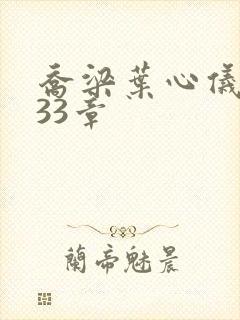 喬梁葉心儀
33章
蘭帝魅晨